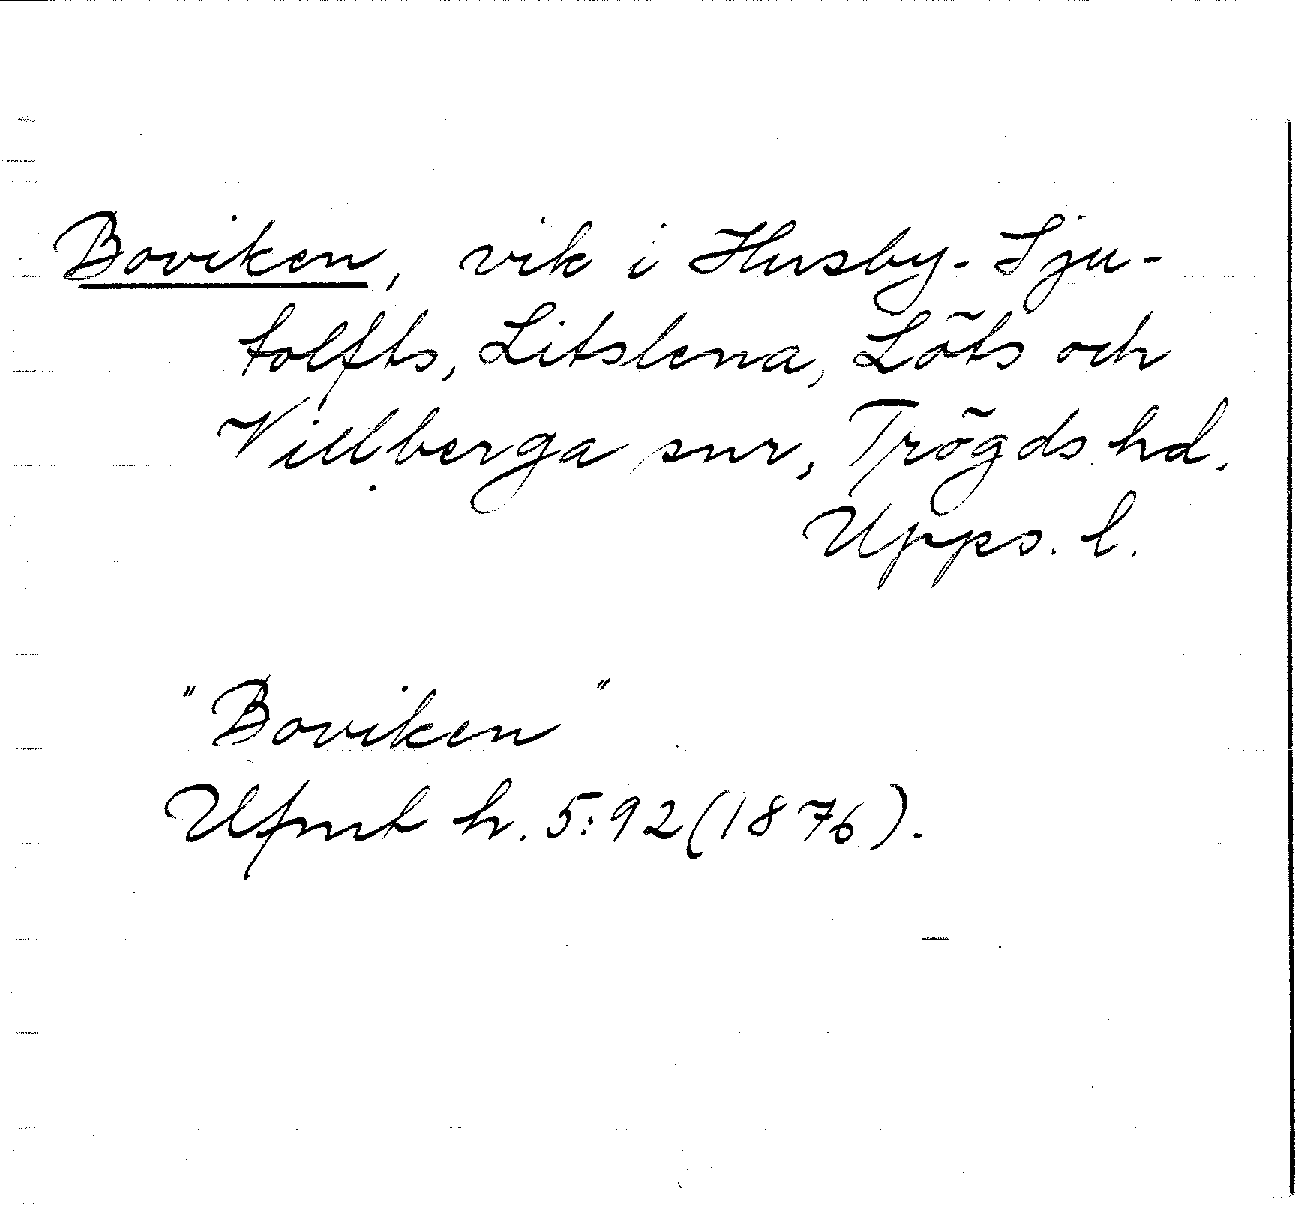 Boviken, vik i Husby-Sju-
tolfts, Litslena, Löts och
Villberga snr, Trögds hd,
Upps. l.
"Boviken"
Ufmt h. 5:92 (1876).